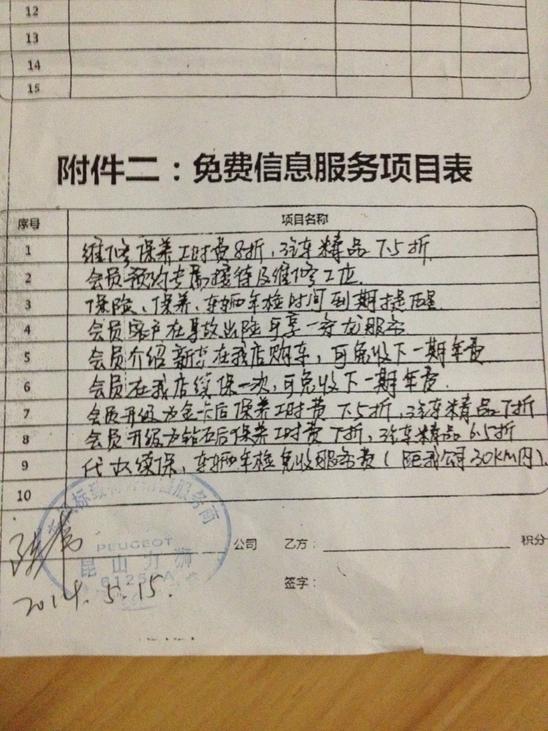 12
13
14
15
附件二：免费信息服务项目表
序号 项目名称
1 维修保养工时费8折,汽车精品7.5折
2 会员预约专属接待及维修工位
3 保险、保养、车辆年检时间到期提醒
4 会员客户在事故出险可享一条龙服务
5 会员介绍新车在我店购车,可免收下一期年费
6 会员在我店续保一次,可免收下一期年费.
7 会员升级为金卡后保养工时费7.5折,汽车精品7折
8 会员升级为钻石后保养工时费7折,汽车精品6.5折
9 代办续保,车辆年检免收服务费(距我公司30KM内).
10
PEUGEOT
昆山力狮
公司 乙方： 积分
签字：
2014.5.15.